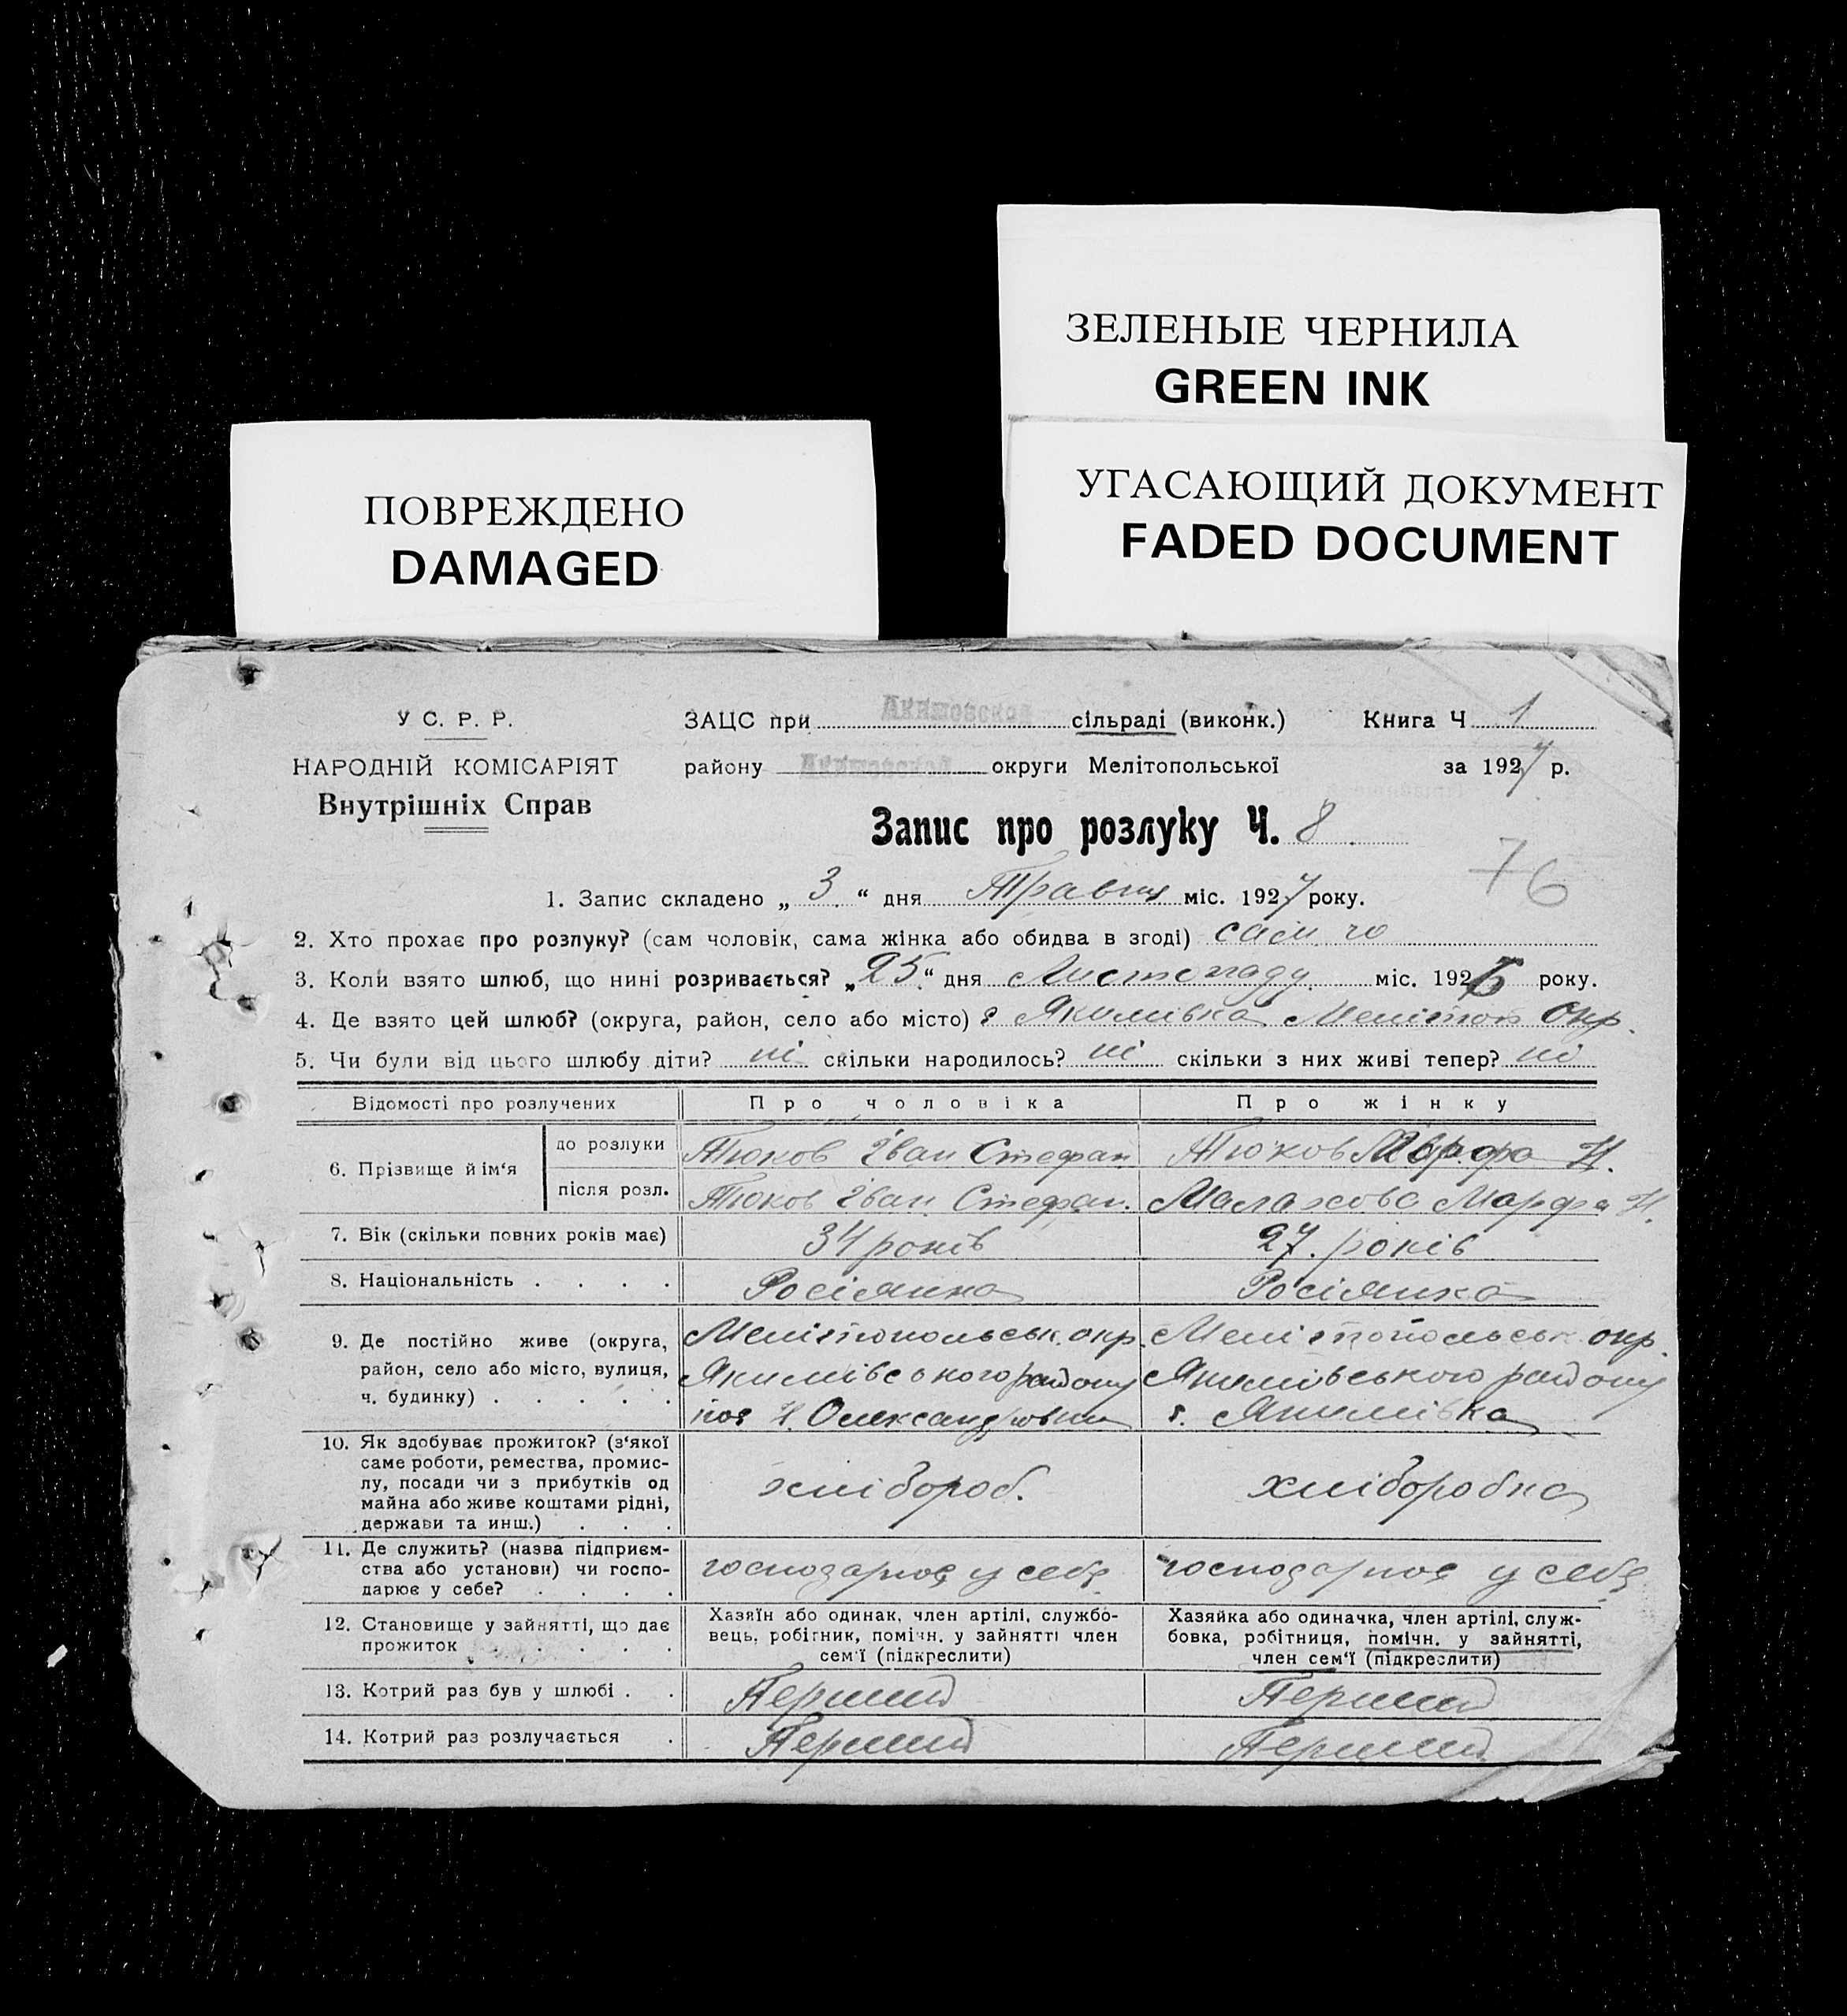 ЗЕЛЕНЫЕ ЧЕРНИЛА
GREEN INK
УГАСАЮЩИЙ ДОКУМЕНТ
FADED DOCUMENT
ПОВРЕЖДЕНО
DAMAGED
У С. Р. Р.
НАРОДНІЙ КОМІСАРІЯТ
Внутрішніх Справ
ЗАЦС при Акимовской сільраді (виконк.) Книга Ч 1
району Акимовской округи Мелітопольської за 1927 р.
Запис про розлуку Ч. 8
76
1. Запис складено „ 3 “ дня Травня міс. 1927 року.
2. Хто прохає про розлуку? (сам чоловік, сама жінка або обидва в згоді) сам чо
3. Коли взято шлюб, що нині розривається? „25“ дня Листопаду міс. 1926 року.
4. Де взято цей шлюб? (округа, район, село або місто) Якимівка Мелітоп Окр.
5. Чи були від цього шлюбу діти? ні скільки народилось? ні скільки з них живі тепер? ні
Відомості про розлучених Про чоловіка Про жінку
6. Прізвище й ім‘я
до розлуки Тюков Іван Стефан Тюков Марфа Н.
після розл. Тюков Іван Стефан. Малахова Марфа Н.
7. Вік (скільки повних років має) 34 років 27. років
8. Національність . . . . Росіянина Росіянка
9. Де постійно живе (округа, Мелітопольськ. окр. Мелітопольськ окр.
район, село або місто, вулиця, Якимівського району Якимовського району
ч. будинку) . . . . . пос Н. Олександровка с. Якимівка
10. Як здобуває прожиток? (з‘якої
саме роботи, ремества, промис-
лу, посади чи з прибутків од
майна або живе коштами рідні,
держави та инш.) . . .
хлібороб. хліборобка
11. Де служить? (назва підприєм-
ства або установи) чи госпо-
дарює у себе? . . . .
господарює у себе господарює у себе
12. Становище у зайнятті, що дає
прожиток . . . . .
Хазяїн або одинак, член артілі, службо-
вець, робітник, помічн. у зайнятті член
сем‘ї (підкреслити)
Хазяйка або одиначка, член артілі, служ-
бовка, робітниця, помічн. у зайнятті,
член сем‘ї (підкреслити)
13. Котрий раз був у шлюбі . . Перший Перший
14. Котрий раз розлучається . Перший Перший